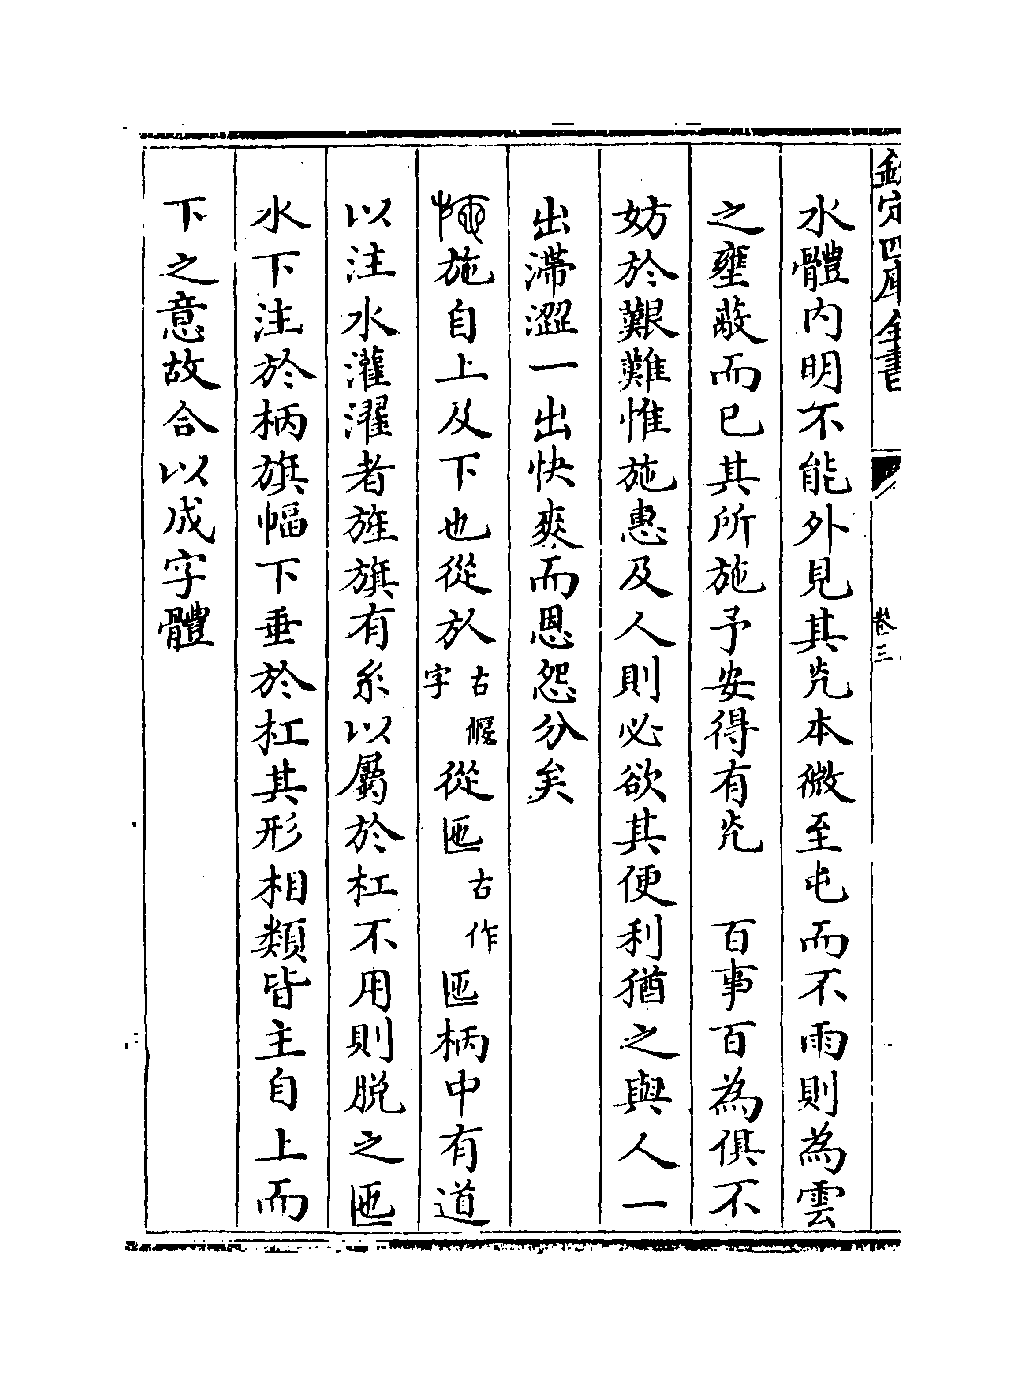 欽定四庫全書 卷三
水體内明不能外見其光本微至屯而不雨則為雲
之壅蔽而已其所施予安得有光　百事百為俱不
妨於艱難惟施惠及人則必欲其便利猶之與人一
出滯澀一出快爽而恩怨分矣
施自上及下也從㫃古偃字從匜古作匜柄中有道
以注水灌濯者旌旗有糸以屬於杠不用則脱之匜
水下注於柄旗幅下垂於杠其形相類皆主自上而
下之意故合以成字體